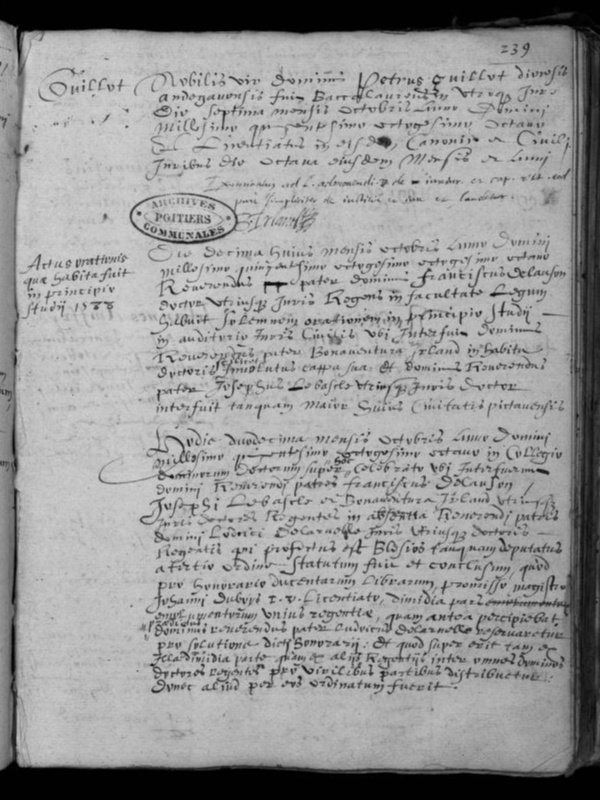 239
Guillot Nobilis vir dominus Petrus Guillot diocesis
andegavensis fuit Baccalaureus in utroq Jure
die septima mensis octobris Anno Domini
millesimo quingentesimo octogesimo octavo
Et Licentiatus in eisdem Canonico et Civili
Juribus die octava eiusdem mensis et Anni
ARCHIVES
POITIERS
COMMUNALES
Actus orationis
quæ habita fuit
in principio
studii 1588
Die decima huius mensis octobris Anno Domini
millesimo quingentesimo octogesimo octavo
Reverendus pater dominus Franciscus delauson
doctor utriusq Juris Regens in facultate Legum
habuit solemnem orationem in principio studii
in auditorio Juris Civilis ubi interfuit dominus
Reverendus pater Bonaventura Irland in habitu
doctoris Involutus cappa sua. Et dominus Reverendus
pater Josephus Lebascle utriusq Juris doctor
interfuit tanquam maior huius Civitatis pictavensis
Hodie duodecima mensis octobris Anno Domini
millesimo quingentesimo octogesimo octavo in Collegio
dominorum doctorum super hoc Celebrato ubi Interfuerunt
domini Reverendi patres Franciscus Delauson
Josephi Lebascle et Bonaventura Irland utriusq
Juris doctores Regentes in absentia Reverendi patris
domini Ludovici Delaruelle Juris utriusq doctoris
Regentis qui profectus est Blesios tanquam deputatus
a tertio ordine Statutum fuit et conclusum, quod
pro honorario ducentarum librarum, promisso magistro
Johanni Duboys Licentiato, dimidia pars
emolumentorum unius regentiæ, quam antea percipiebat
dominus reverendus pater Ludovicus delaruelle reservaretur
pro solutione dicti honorarii. Et quod super erit tam ex
illa dimidia parte quam ex aliis Regentiis inter omnes dominos
doctores regentes pro virilibus partibus distribuetur
donec aliud per eos ordinatum fuerit.